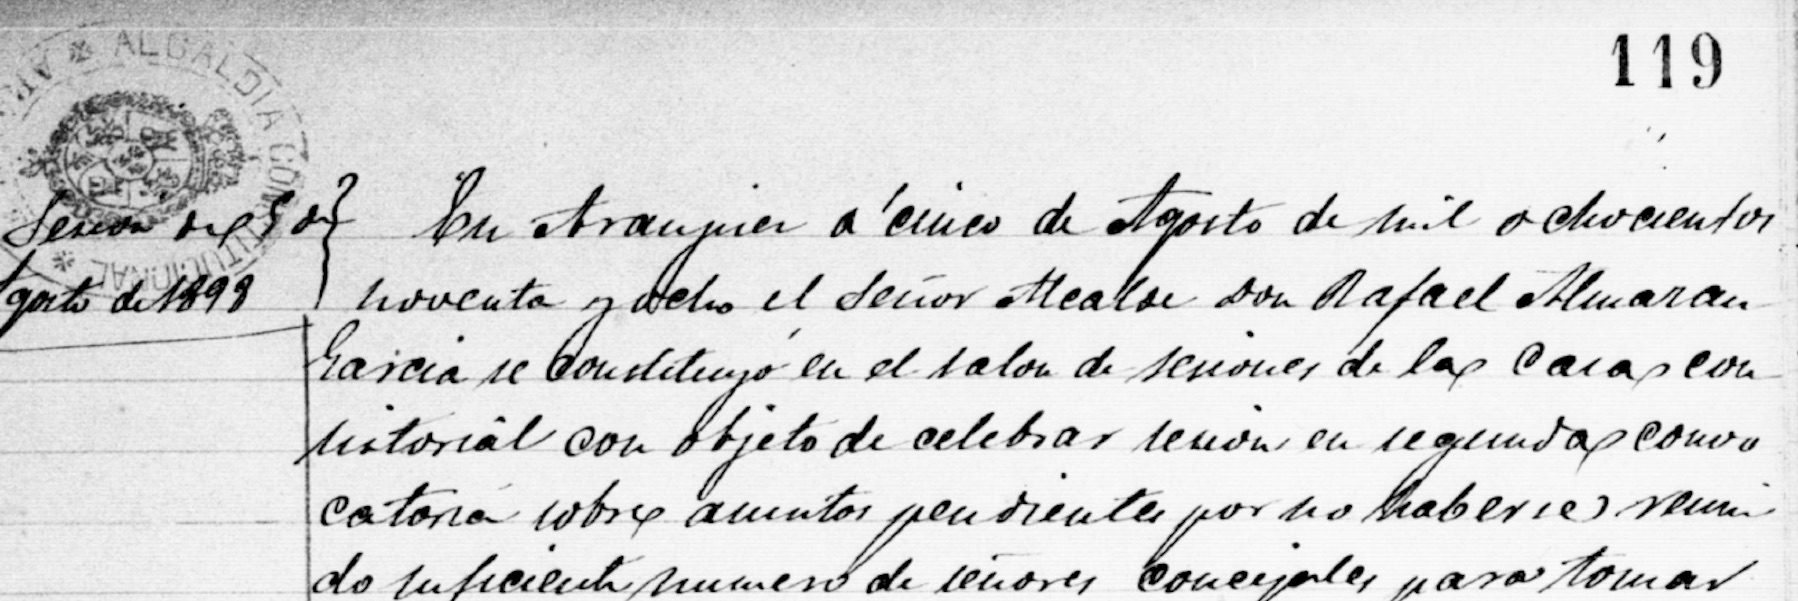 119
ALCALDIA CONSTITUCIONAL
Sesion de 5 de
Agosto de 1898
En Aranjuez a cinco de Agosto de mil ochocientos
noventa y ocho el Señor Alcalde Don Rafael Almazan
Garcia se constituyó en el salon de sesiones de la Casa con
sistorial con objeto de celebrar sesion en segunda convo
catoria sobre asuntos pendientes por no haberse reuni
do suficiente numero de señores concejales para tomar